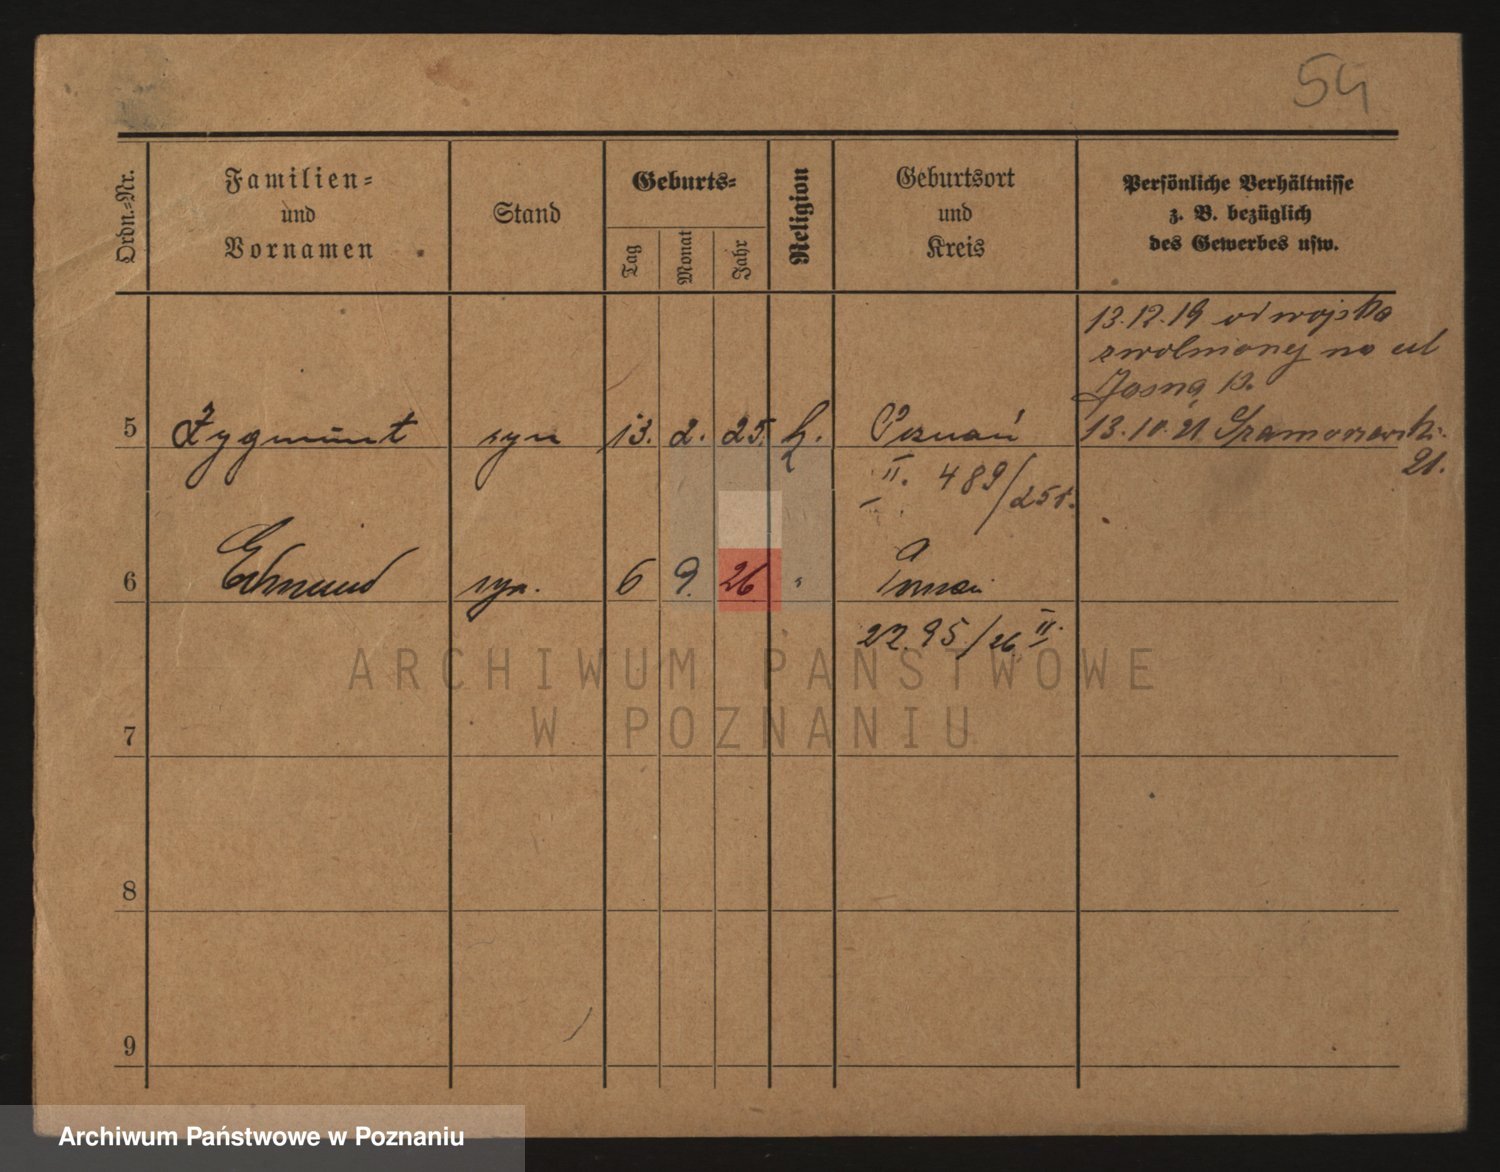 54
Ordn.-Nr.
Familien-
und
Vornamen
Stand
Geburts-
Tag
Monat
Jahr
Religion
Geburtsort
und
Kreis
Persönliche Verhältnisse
z. B. bezüglich
des Gewerbes usw.
13.12.19 od wojska
zwolnionej na ul
Jasną 12.
5 Zygmunt syn 13. 2. 25. k. Poznań 13.10.21 Szamarzewski.
21.
II. 489/25r.
6 Edmund syn. 6 9. 26 " Poznań
2295/26 II.
ARCHIWUM PAŃSTWOWE
W POZNANIU
7
8
9
Archiwum Państwowe w Poznaniu